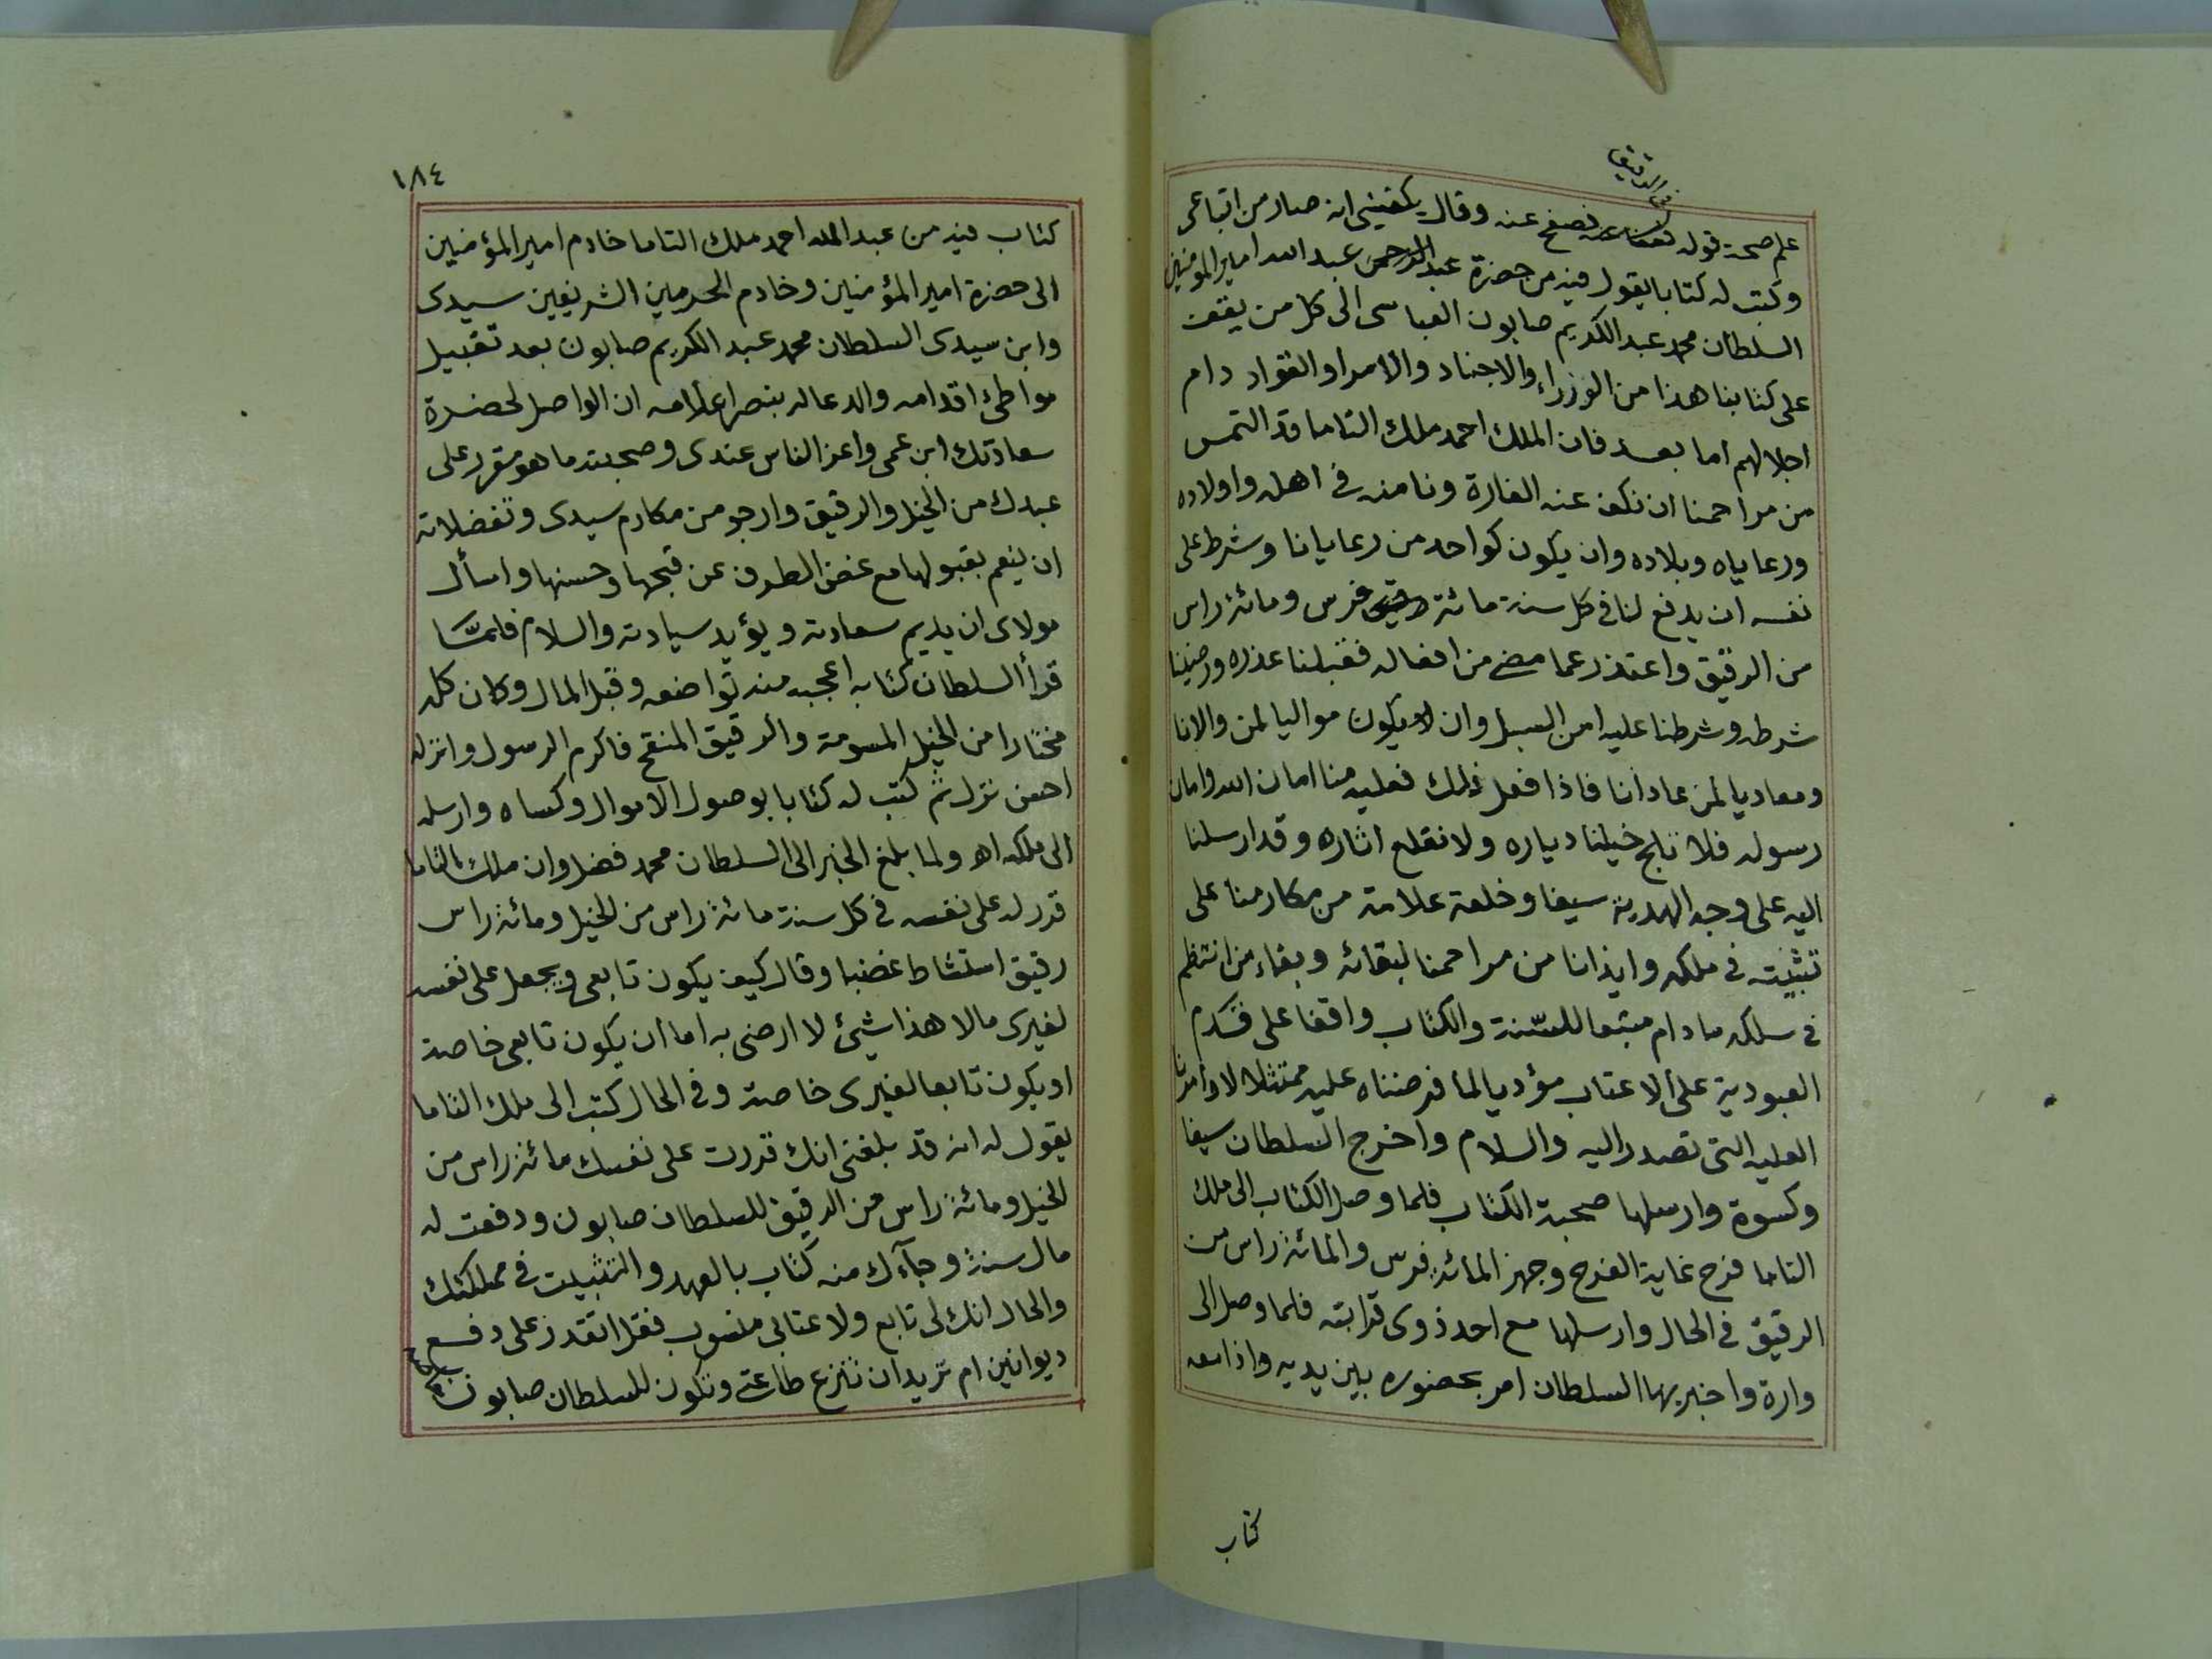 من الرقيق
علم صحة قوله فصفح عنه وقال يكفيني انه صار من اتباعى
وكتب له كتابا يقول فيه من حضرة عبد الرحمن عبد الله امير المؤمنين
السلطان محمد عبد الكريم صابون العباسى الى كل من يقف
على كتابنا هذا من الوزراء والاجناد والامرا والقواد دام
اجلالهم اما بعد فان الملك احمد ملك التاما قد التمس
من مراحمنا ان نكف عنه الغارة ونامنه فى اهله واولاده
ورعاياه وبلاده وان يكون كواحد من رعايانا وشرط على
نفسه ان يدفع لنا فى كل سنة مائة فرس ومائة راس
من الرقيق واعتذر عما مضى من افعاله فقبلنا عذره ورضينا
شرطه وشرطنا عليه امن السبل وان يكون مواليا لمن والانا
ومعاديا لمن عادانا فاذا فعل ذلك فعليه منا امان الله وامان
رسوله فلا تلج خيلنا دياره ولا نقلع اثاره وقد ارسلنا
اليه على وجه الهدية سيفا وخلعة علامة من مكارمنا على
تثبيته فى ملكه وايذانا من مراحمنا لبقائه وبقاء من انتظم
فى سلكه ما دام متبعا للسّنة والكتاب واقفا على قدم
العبودية على الاعتاب مؤديا لما فرضناه عليه ممتثلا لاوامرنا
العليه التى تصدر اليه والسلام واخرج السلطان سيفا
وكسوة وارسلها صحبة الكتاب فلما وصل الكتاب الى ملك
التاما فرح غاية الفرح وجهز المائة فرس والمائة راس من
الرقيق فى الحال وارسلها مع احد ذوى قرابته فلما وصل الى
وارة واخبر بها السلطان امر بحضوره بين يديه واذا معه
كتاب
١٨٤
كتاب فيه من عبد الله احمد ملك التاما خادم امير المؤمنين
الى حضرة امير المؤمنين وخادم الحرمين الشريفين سيدى
وابن سيدى السلطان محمد عبد الكريم صابون بعد تقبيل
مواطئ اقدامه والدعا له بنصر اعلامه ان الواصل لحضرة
سعادتك ابن عمى واعز الناس عندى وصحبته ما هو مقرر على
عبدك من الخيل والرقيق وارجو من مكارم سيدى وتفضلاته
ان ينعم بقبولها مع غض الطرف عن قبحها وحسنها واسأل
مولاى ان يديم سعادته ويؤيد سيادته والسلام فلمَّا
قرأ السلطان كتابه اعجبه منه تواضعه وقبل المال وكان كله
مختارا من الخيل المسومة والرقيق المنقح فاكرم الرسول وانزله
احسن نزل ثم كتب له كتابا بوصول الاموال وكساه وارسله
الى ملكه اهـ ولما بلغ الخبر الى السلطان محمد فضل وان ملك التاما
قرر له على نفسه فى كل سنة مائة راس من الخيل ومائة راس
رقيق استشاط غضبا وقال كيف يكون تابعى ويجعل على نفسه
لغيرى مالا هذا شيئ لا ارضى به اما ان يكون تابعى خاصة
او يكون تابعا لغيرى خاصة وفى الحال كتب الى ملك التاما
يقول له انه قد بلغنى انك قررت على نفسك مائة راس من
الخيل ومائة راس من الرقيق للسلطان صابون ودفعت له
مال سنة وجآءك منه كتاب بالعهد والتثبيت فى مملكتك
والحال انك لى تابع ولاعتابى منسوب فقل اتقدر على دفع
ديوانين ام تريد ان تنزع طاعتى وتكون للسلطان صابون